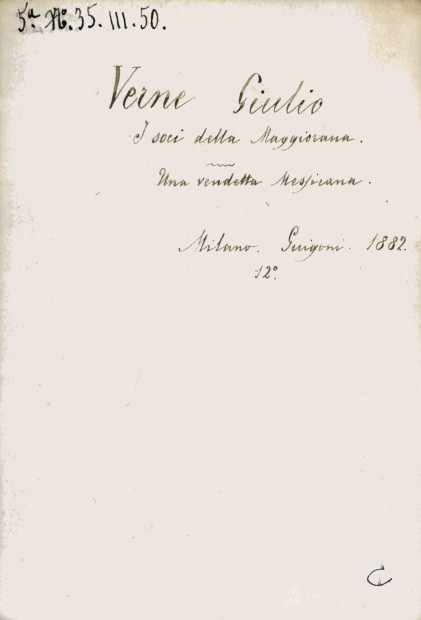 5ª N.º 35. III. 50.
Verne Giulio
I soci della Maggiorana.
Una vendetta Messicana.
Milano. Guigoni. 1882.
12º.
C